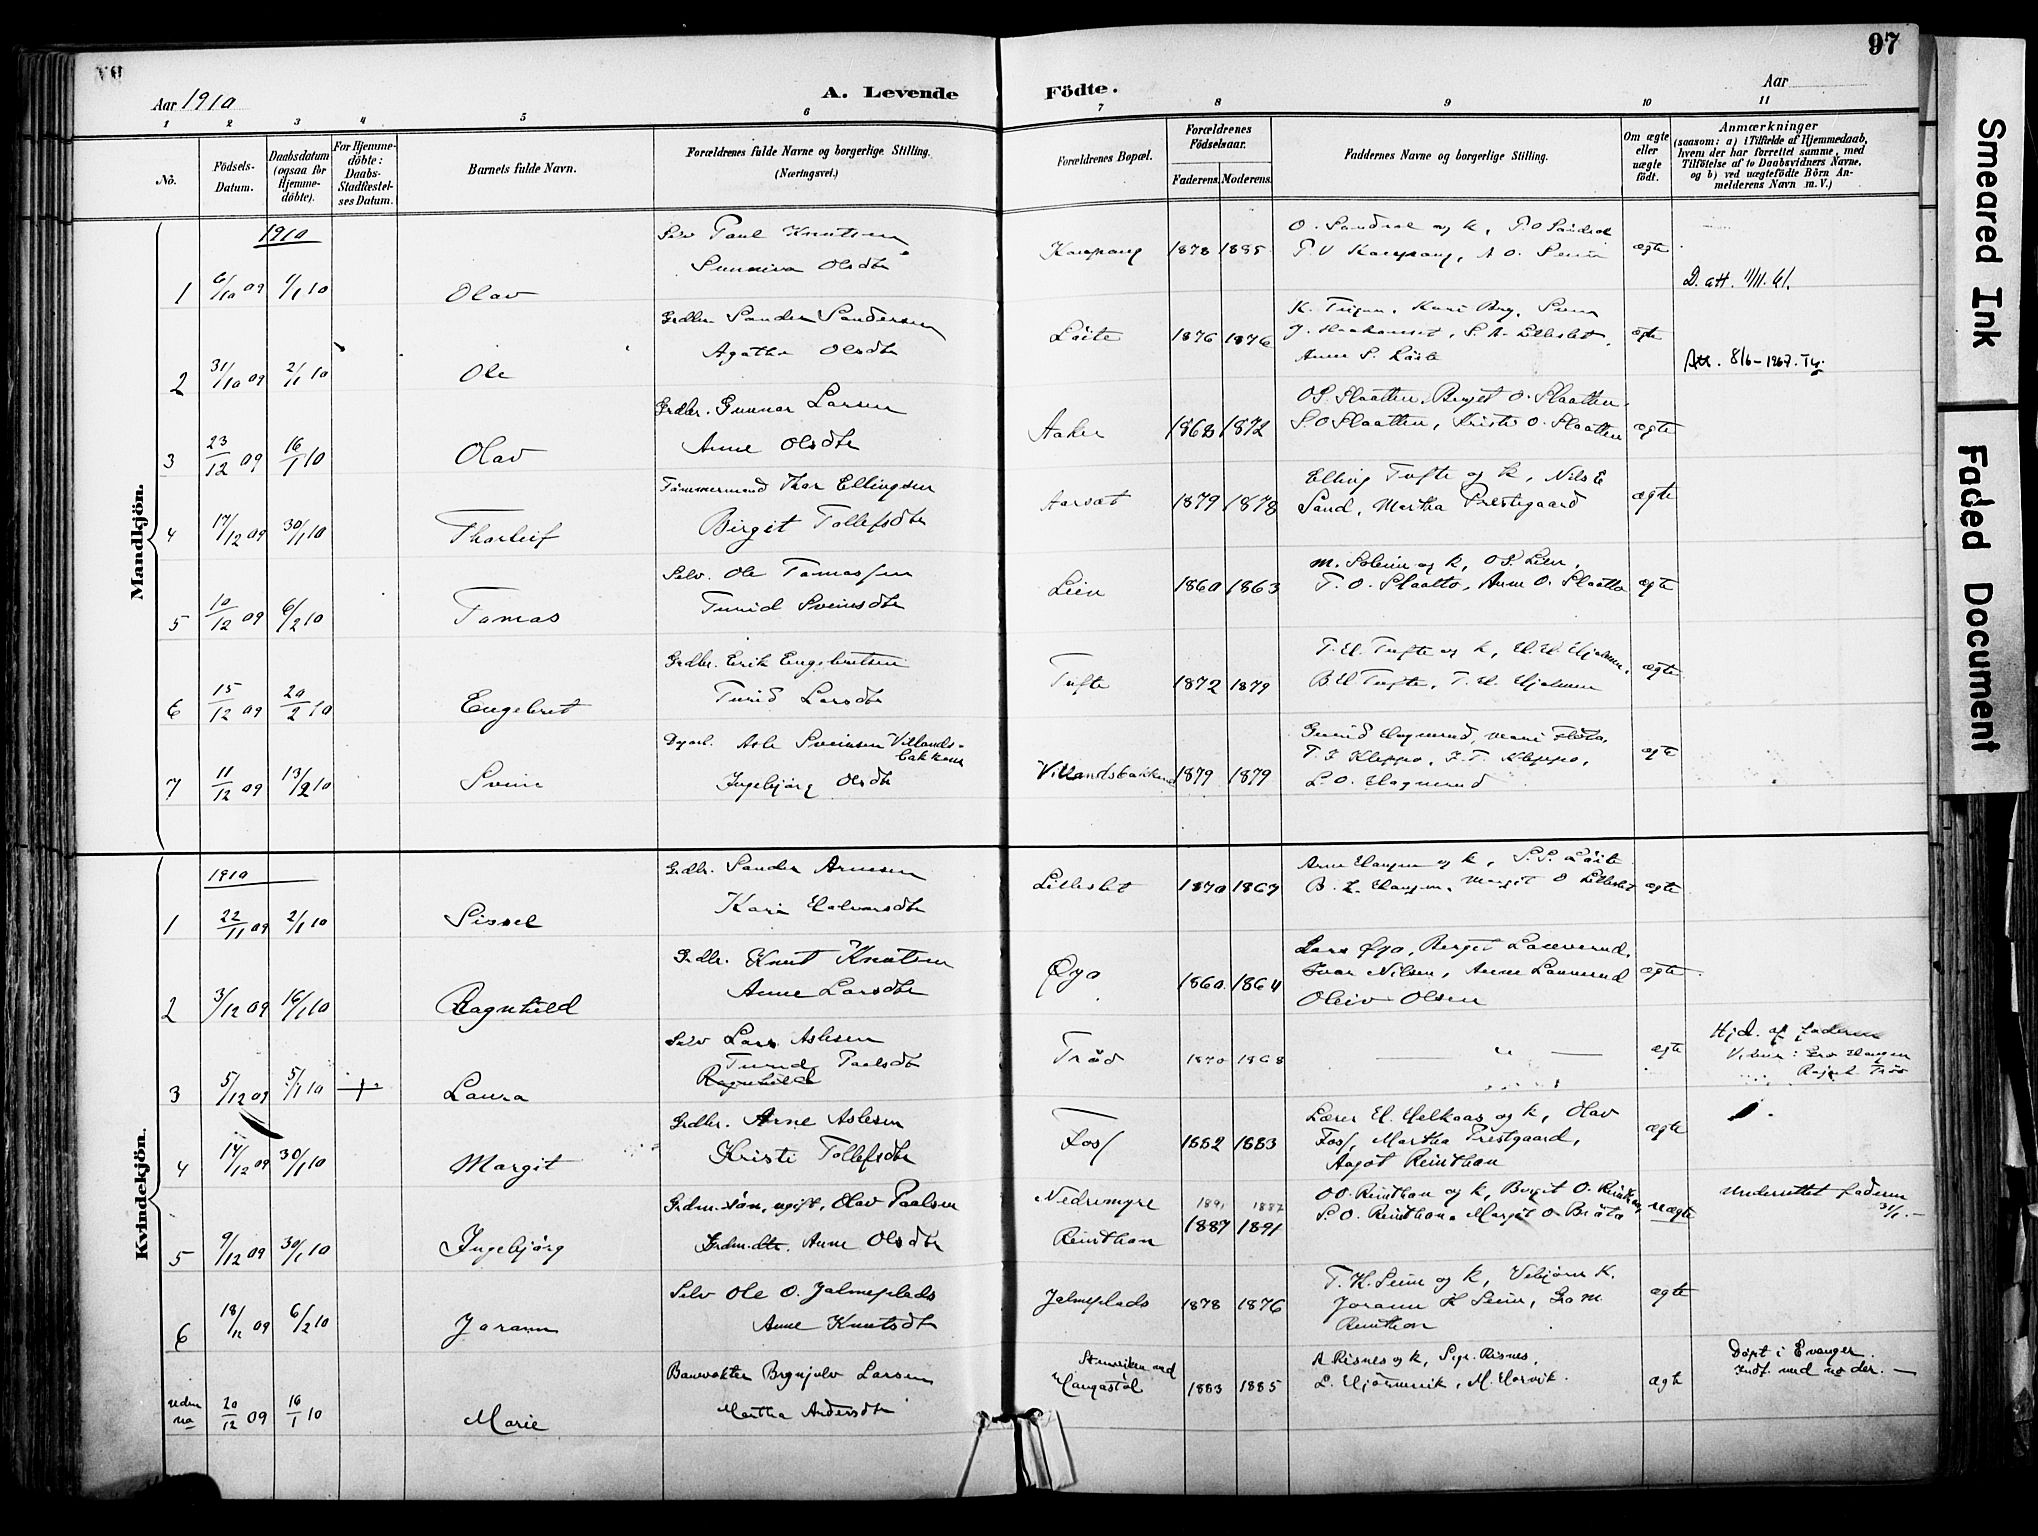 97
Aar 1910
A. Levende
Födte.
Aar
1 2 3 4 5 6 7 8 9 10 11
No.
Födsels-Datum.
Daabsdatum (ogsaa for Hjemme-döbte).
For Hjemme-döbte: Daabs-Stadfæstel-ses Datum.
Barnets fulde Navn.
Forældrenes fulde Navne og borgerlige Stilling.
(Næringsvei.)
Forældrenes Bopæl.
Forældrenes Födselsaar.
Faderens. Moderens.
Faddernes Navne og borgerlige Stilling.
Om ægte eller uægte födt.
Anmærkninger
(saasom: a) i Tilfælde af Hjemmedaab, hvem der har forrettet samme, med Tilföielse af to Daabsvidners Navne, og b) ved uægtefödte Börn An-melderens Navn m.V.)
Mandkjön.
1910
1 6/10 09 1/1 10 Olav
Selv Paul Knutsen
Sunniva Olsdtr
1878 1885
O. Sandvol og k,
ægte
D. att. 11/11. 61.
2 31/10 09 2/11 10 Ole
Grdbr. Sander Sandersen
Agathe Olsdtr
Löite 1876 1876
ægte
Att. 8/6-1967.
3 23/12 09 16/1 10 Olav
Grdbr. Gunnar Larsen
Anne Olsdtr
Aaker 1868 1872
O S. Slaatten, Berget O. Slaatten,
S. O Slaatten, Kristi O. Slaatten
ægte
4 17/12 09 30/1 10 Thorleif
Tømmermand Thor Ellingsen
Birgit Tollefsdtr
Aarsæt 1879 1878
Elling Tufte og k, Nils E
Sand, Martha Prestegaard
ægte
5 10/12 09 6/2 10 Tomas
Selv. Ole Tomassen
Turid Sveinsdtr
Lien 1860 1863
M. Soleim og k, O S. Lien,
T. O. Slaatto, Anne O. Slaatto
ægte
6 15/12 09 20/2 10 Engebret
Grdbr. Erik Engebretsen
Turid Larsdtr
Tufte 1872 1879
T. E. Tufte og k,
B E Tufte,
ægte
7 11/12 09 13/2 10 Svein
Asle Sveinsen Villands-bakken
Ingebjørg Olsdtr
Villandsbakken 1879 1879
T. I Kleppo, I. T. Kleppo,
ægte
Kvindekjön.
1910
1 22/11 09 2/1 10 Sissel
Grdbr. Sander Arnesen
Kari Halvorsdtr
Lilleslet 1870 1867
Arne Haugen og k, S. S. Löite
B. L. Haugen, Margit O Lilleslet
ægte
2 3/12 09 16/1 10 Ragnhild
Grdbr. Knut Knutsen
Anne Larsdtr
Øyo 1860 1864
Lars Øyo,
Ivar Nilsen, Anne
Oleiv Olsen
ægte
3 5/12 09 5/1 10 + Laura
Selv Lars Aslesen
Turid Paalsdtr
Ragnhild
Tröo 1870 1868
— " —
ægte
Hjd. af faderen
Vidner: Gro Haugen
4 14/12 09 30/1 10 Margit
Grdbr. Arne Aslesen
Kristi Tollefsdtr
Foss 1882 1883
Lærer H. Helkaas og k, Olav
Foss, Martha Prestgaard,
Aagot Reinthon
ægte
5 9/12 09 30/1 10 Ingebjörg
Grdm. søn, ugift, Olav Paalsen
Grdm.dtr. Anne Olsdtr
Nedremyre
Reinthon
1891 1887
1887 1891
O O. Reinthon og k, Birgit O. Reinthon,
S. O. Reinthon, Margit O Bråta
uægte
Underrettet faderen
31/1. —
6 18/12 09 6/2 10 Jorann
Selv Ole O. Jalmeplads
Anne Knutsdtr
Jalmeplads 1878 1876
T. K. Seim og k, Vebjörn K.
Jorann K Seim, Gro M
Reinthon
ægte
uden no 20/12 09 16/1 10 Marie
Banevokter Brynjulv Larsen
Martha Andersdtr
Haugastöl 1883 1885
A Risnes og k, Sigr. Risnes,
ægte
Döpt i Evanger.
Indf. med no der. —
Smeared Ink
Faded Document